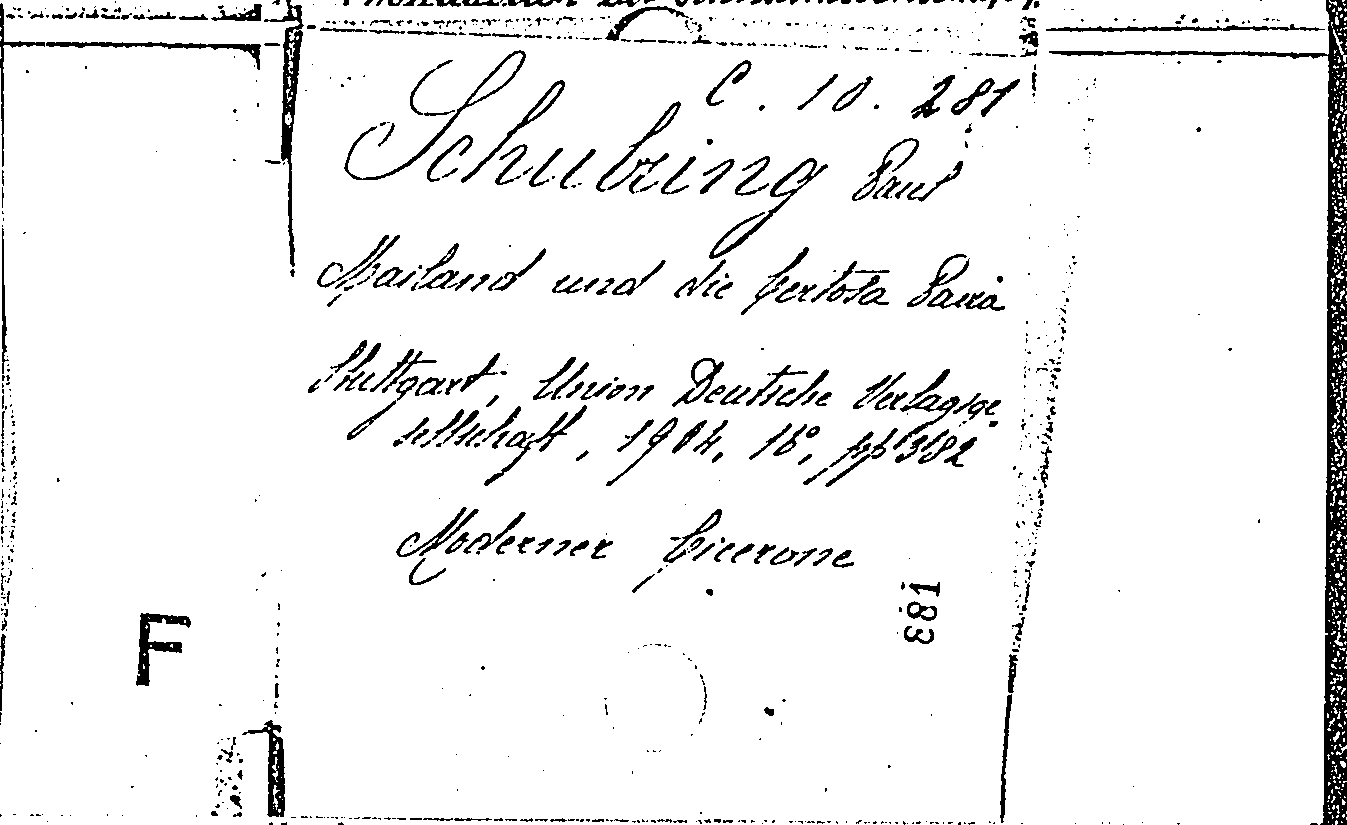 C. 10. 281
Schubring Paul
Mailand und die Certosa Pavia
Stuttgart, Union Deutsche Verlagsge
sellschaft, 1904, 16°, pp 382
Moderner Cicerone
183
F